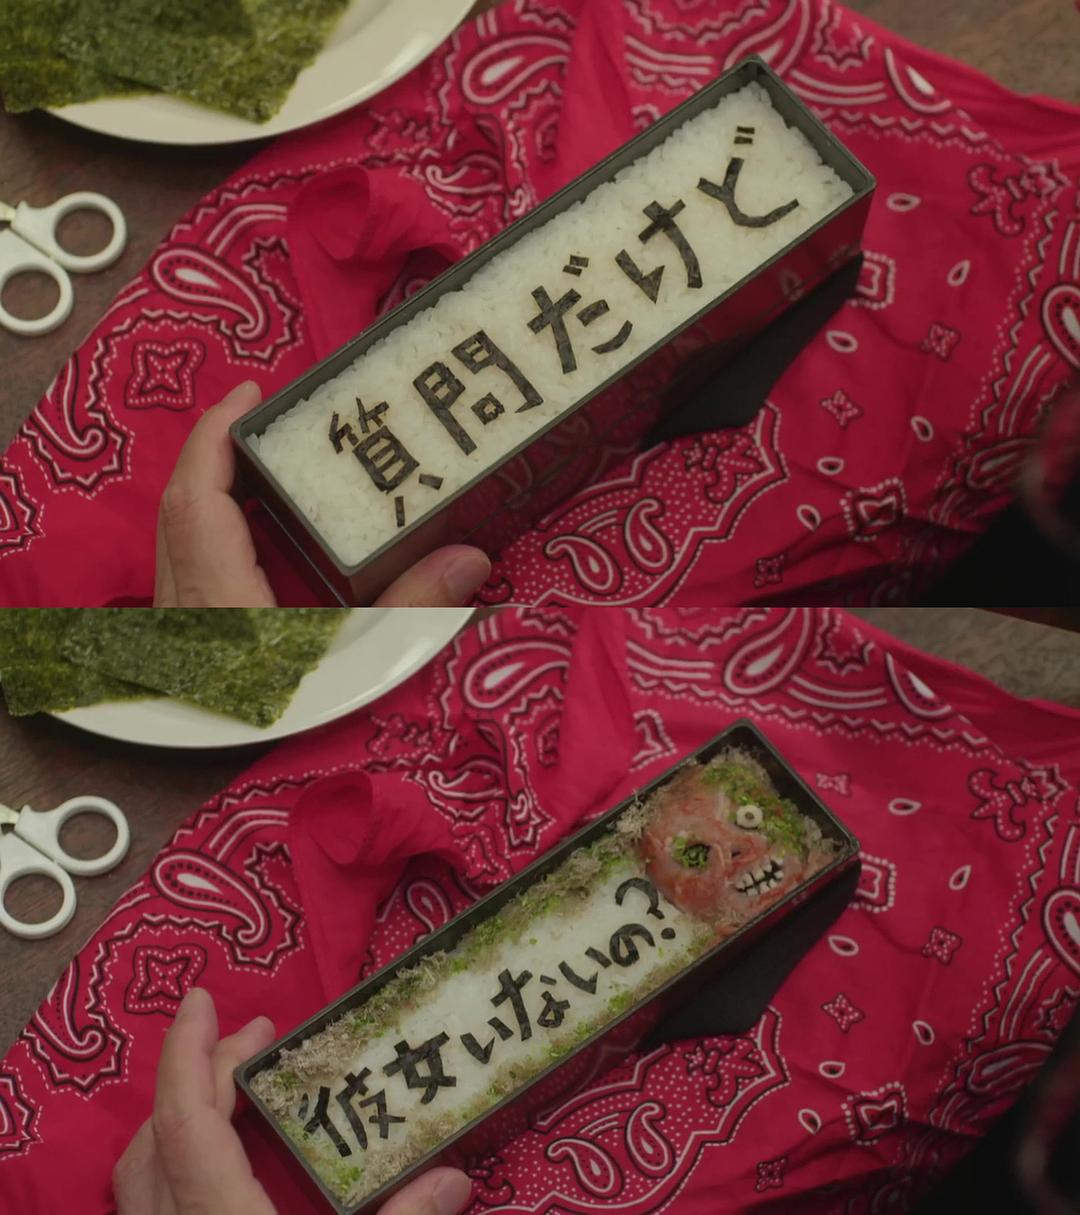 質問だけど
彼女いないの?